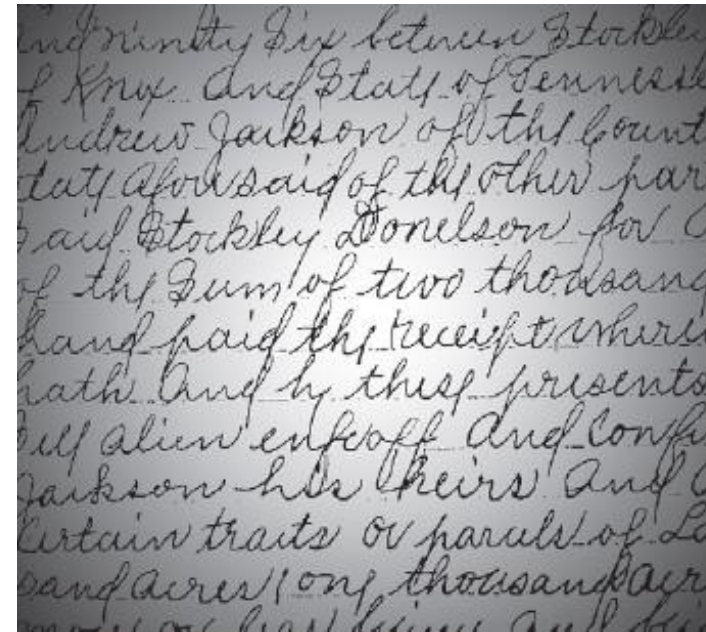 and ninety Six between Stockley
of Knox and State of Tennesse
Andrew Jackson of the Count
State aforesaid of the other par
Said Stockley Donelson for
of the Sum of two thousand
hand paid the receipt where
hath And by these presents
Sell alien enfeoff and Confi
Jackson his heirs And
Certain tracts or parcels of La
sand acres one thousand acr
more or less being and